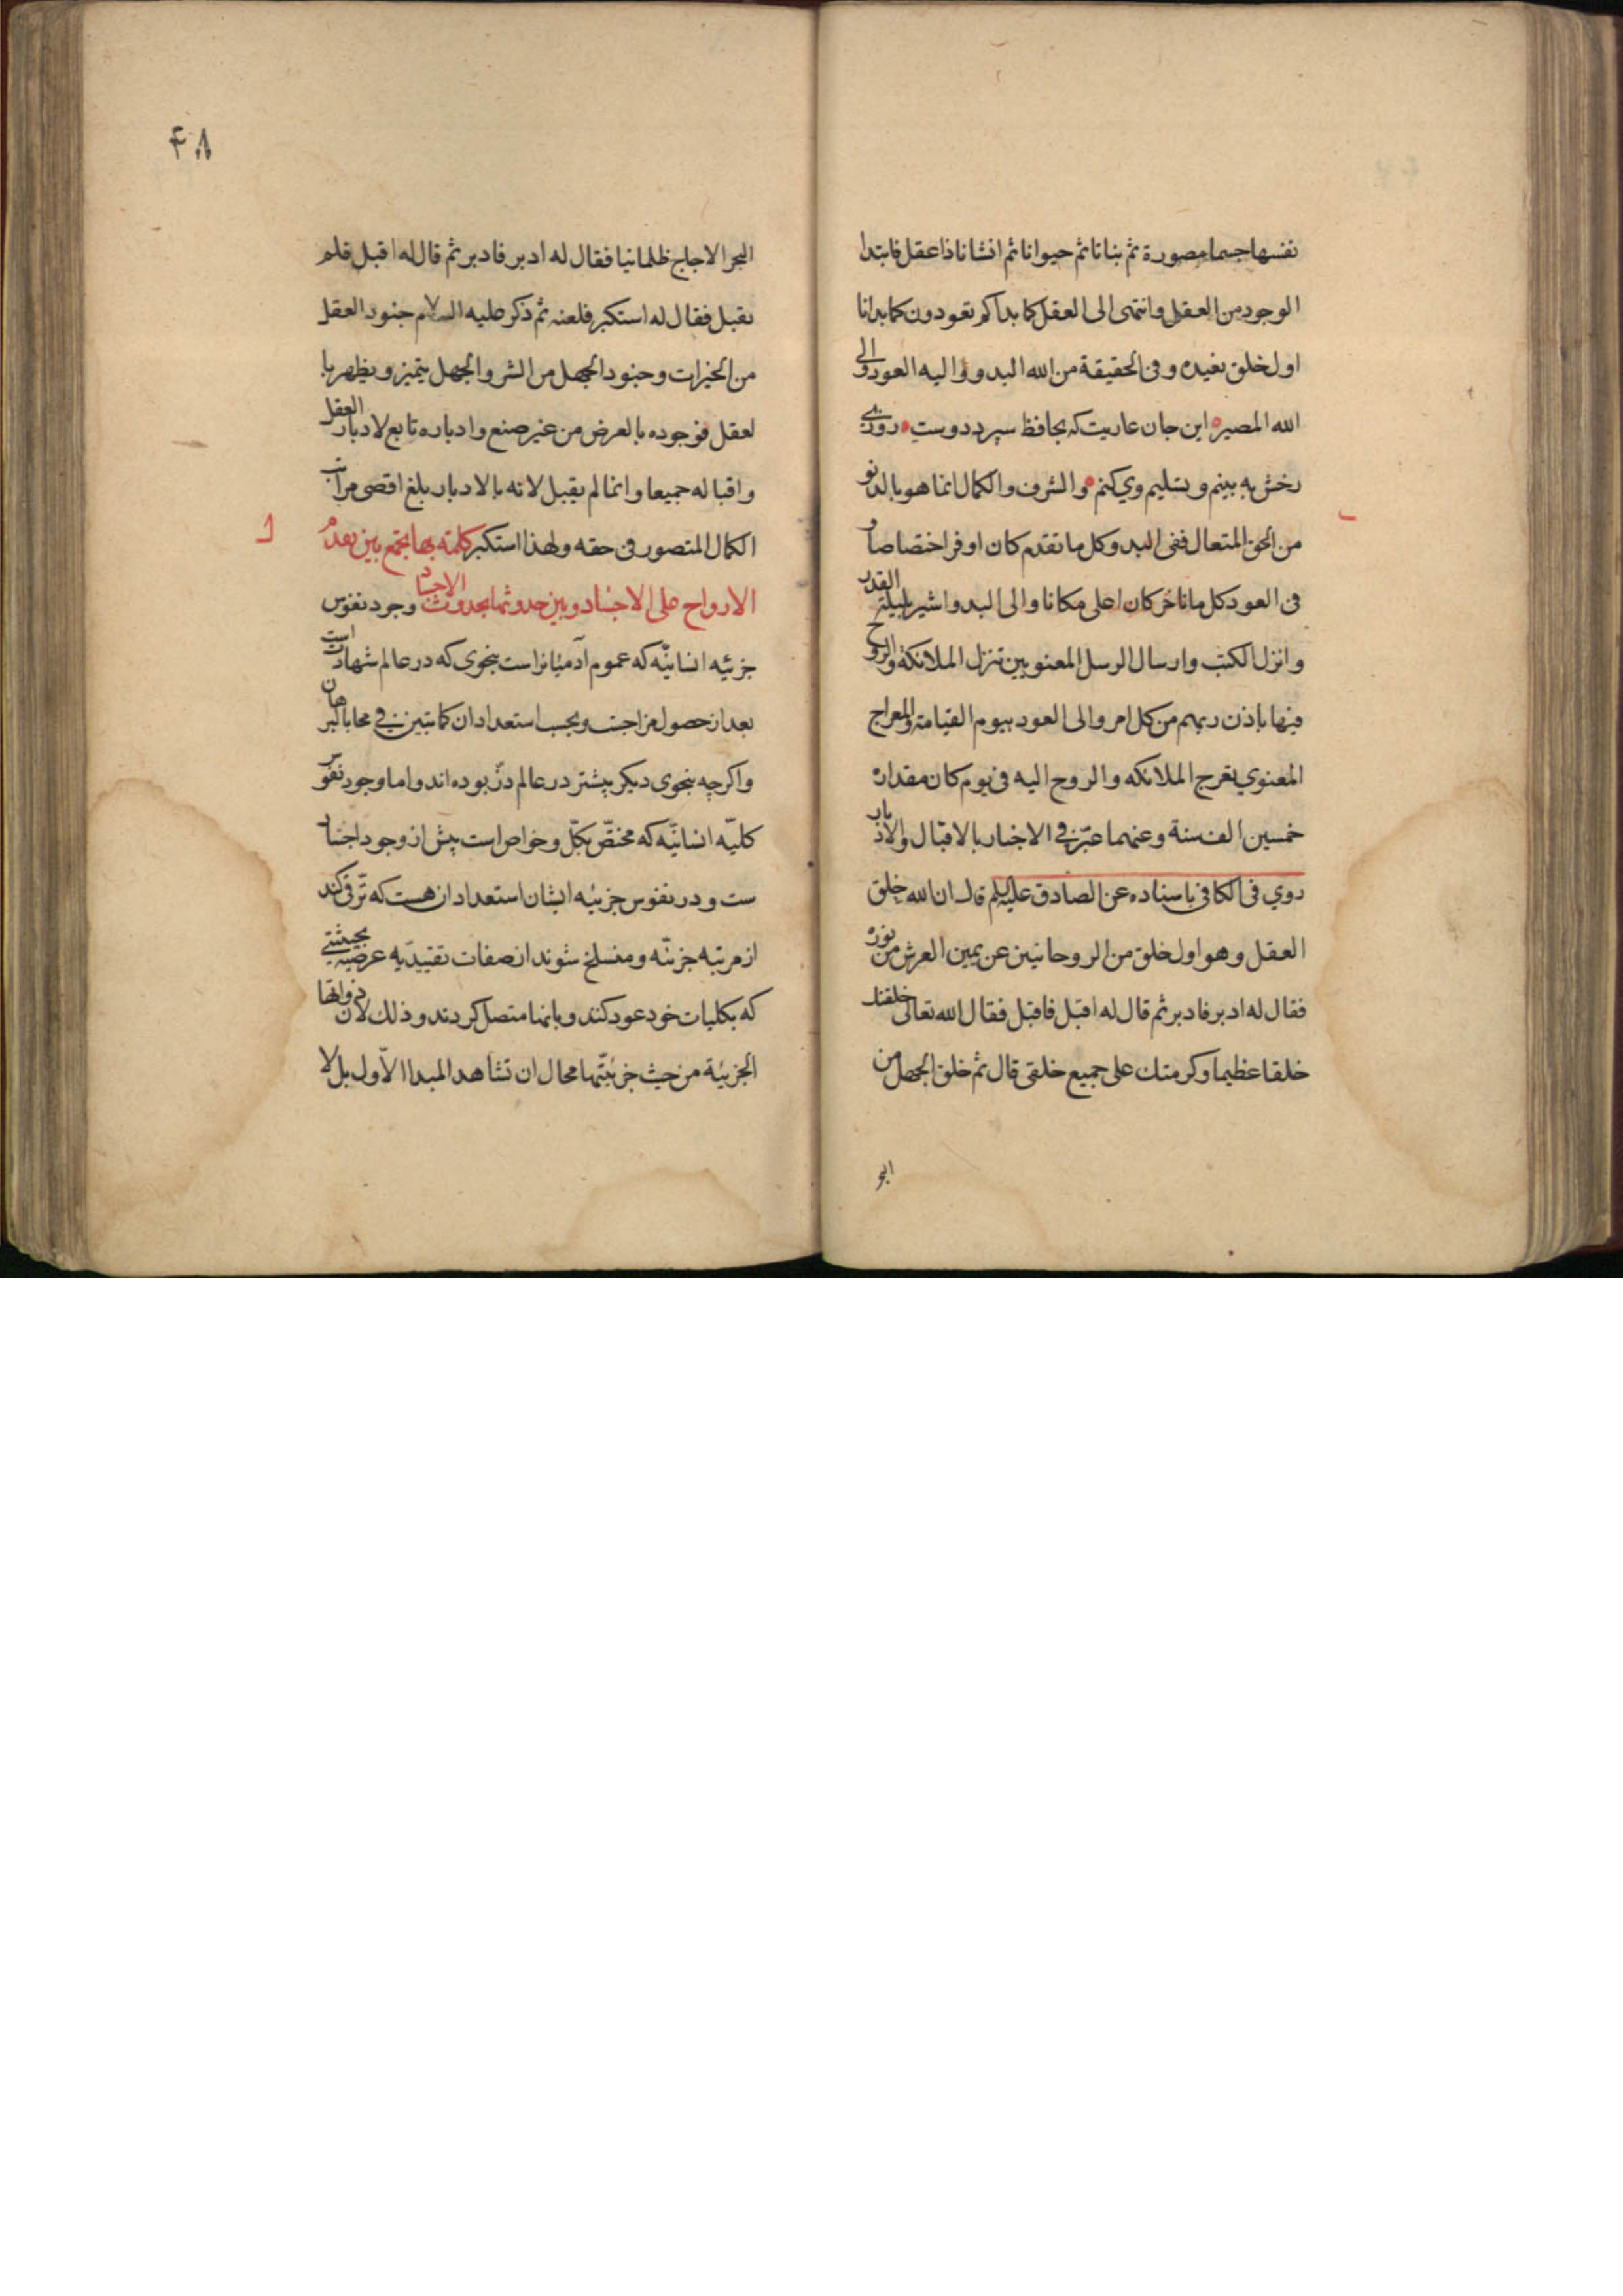 نفسها جسما مصورة ثم نباتا ثم حيوانا ثم انشانا ذا عقل فابتدا
الوجود من العقل وانتهى الى العقل كما بداكم تعودون كما بدانا
اول خلق نعيده وفى الحقيقة من الله البدو واليه العود والى
الله المصير اين جان عاريت كه بحافظ سپرد دوست روزى
رخش به بينم و تسليم وي كنم والشرف والكمال انما هو بالدنو
من الحق المتعال ففى البدو كل ما تقدم كان اوفر اختصاصا و
فى العود كل ما تاخر كان اعلى مكانا والى البدو اشير بليلة القدر
وانزل الكتب وارسال الرسل المعنويين تنزل الملائكة والروح
فيها باذن ربهم من كل امر والى العود بيوم القيامة والمعراج
المعنوي تعرج الملائكه والروح اليه فى يوم كان مقداره
خمسين الف سنة وعنهما عبّر في الاخبار بالاقبال والادبار
روي فى الكافى باسناده عن الصادق عليه السلم قال ان الله خلق
العقل وهو اول خلق من الروحانيين عن يمين العرش من نوره
فقال له ادبر فادبر ثم قال له اقبل فاقبل فقال الله تعالى خلقتك
خلقا عظيما وكرمتك على جميع خلقى قال ثم خلق الجهل من
البحر
۴۸
البحر الاجاج ظلمانيا فقال له ادبر فادبر ثم قال له اقبل فلم
يقبل فقال له استكبر فلعنه ثم ذكر عليه السلام جنود العقل
من الخيرات وجنود الجهل من الشر والجهل يتميز ويظهر با
لعقل فوجوده بالعرض من غير صنع وادباره تابع لادبار العقل
واقباله جميعا وانما لم يقبل لانه بالادبار بلغ اقصى مراتب
الكمال المتصور فى حقه ولهذا استكبر كلمة بها يجمع بين تقدم
الارواح على الاجساد وبين حدوثها بحدوث الاجساد وجود نفوس
جزئيه انسانيّه كه عموم آدميانراست بنحوى كه در عالم شهادت است
بعد از حصول مزاجست و بحسب استعداد ان كما تبين في محله بالبرهان
واكرچه بنحوى ديكر پيشتر در عالم ذرّ بوده اند واما وجود نفوس
كليّه انسانيّه كه مختصّ بكمّل و خواص است پيش از وجود اجساد
ست و در نفوس جزئيه ايشان استعداد ان هست كه ترّقى كند
از مرتبه جزئيّه و منسلخ شوند از صفات تقييديّه عرضيّه بحيثيتى
كه بكليات خود عود كنند و بانها متصل كردند وذلك لان ذواتها
الجزئية من حيث جزئيتّها محال ان تشاهد المبدا الاّول بل لا